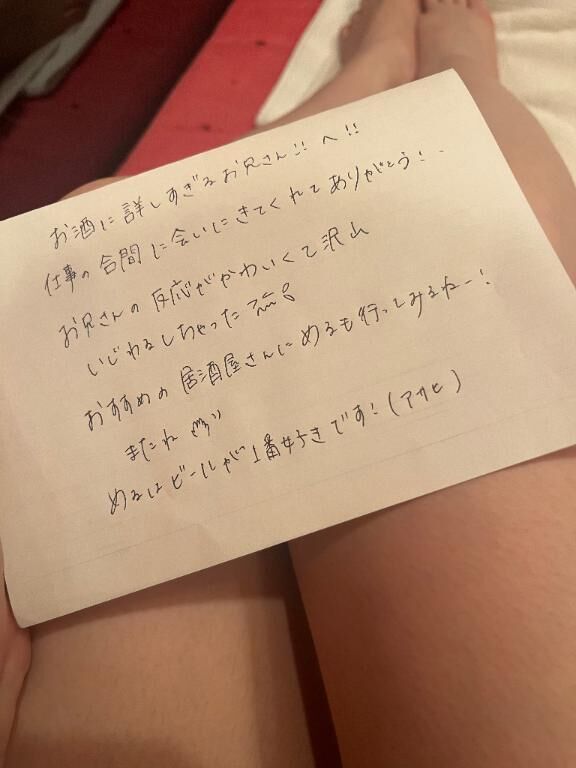 お酒に詳しすぎるお兄さん!! へ!!
仕事の合間に会いにきてくれてありがとう!
お兄さんの反応がかわいくて沢山
いじわるしちゃった
おすすめの居酒屋さんにめるも行ってみるねー!
またね
めるはビールが1番好きです!(アサヒ)